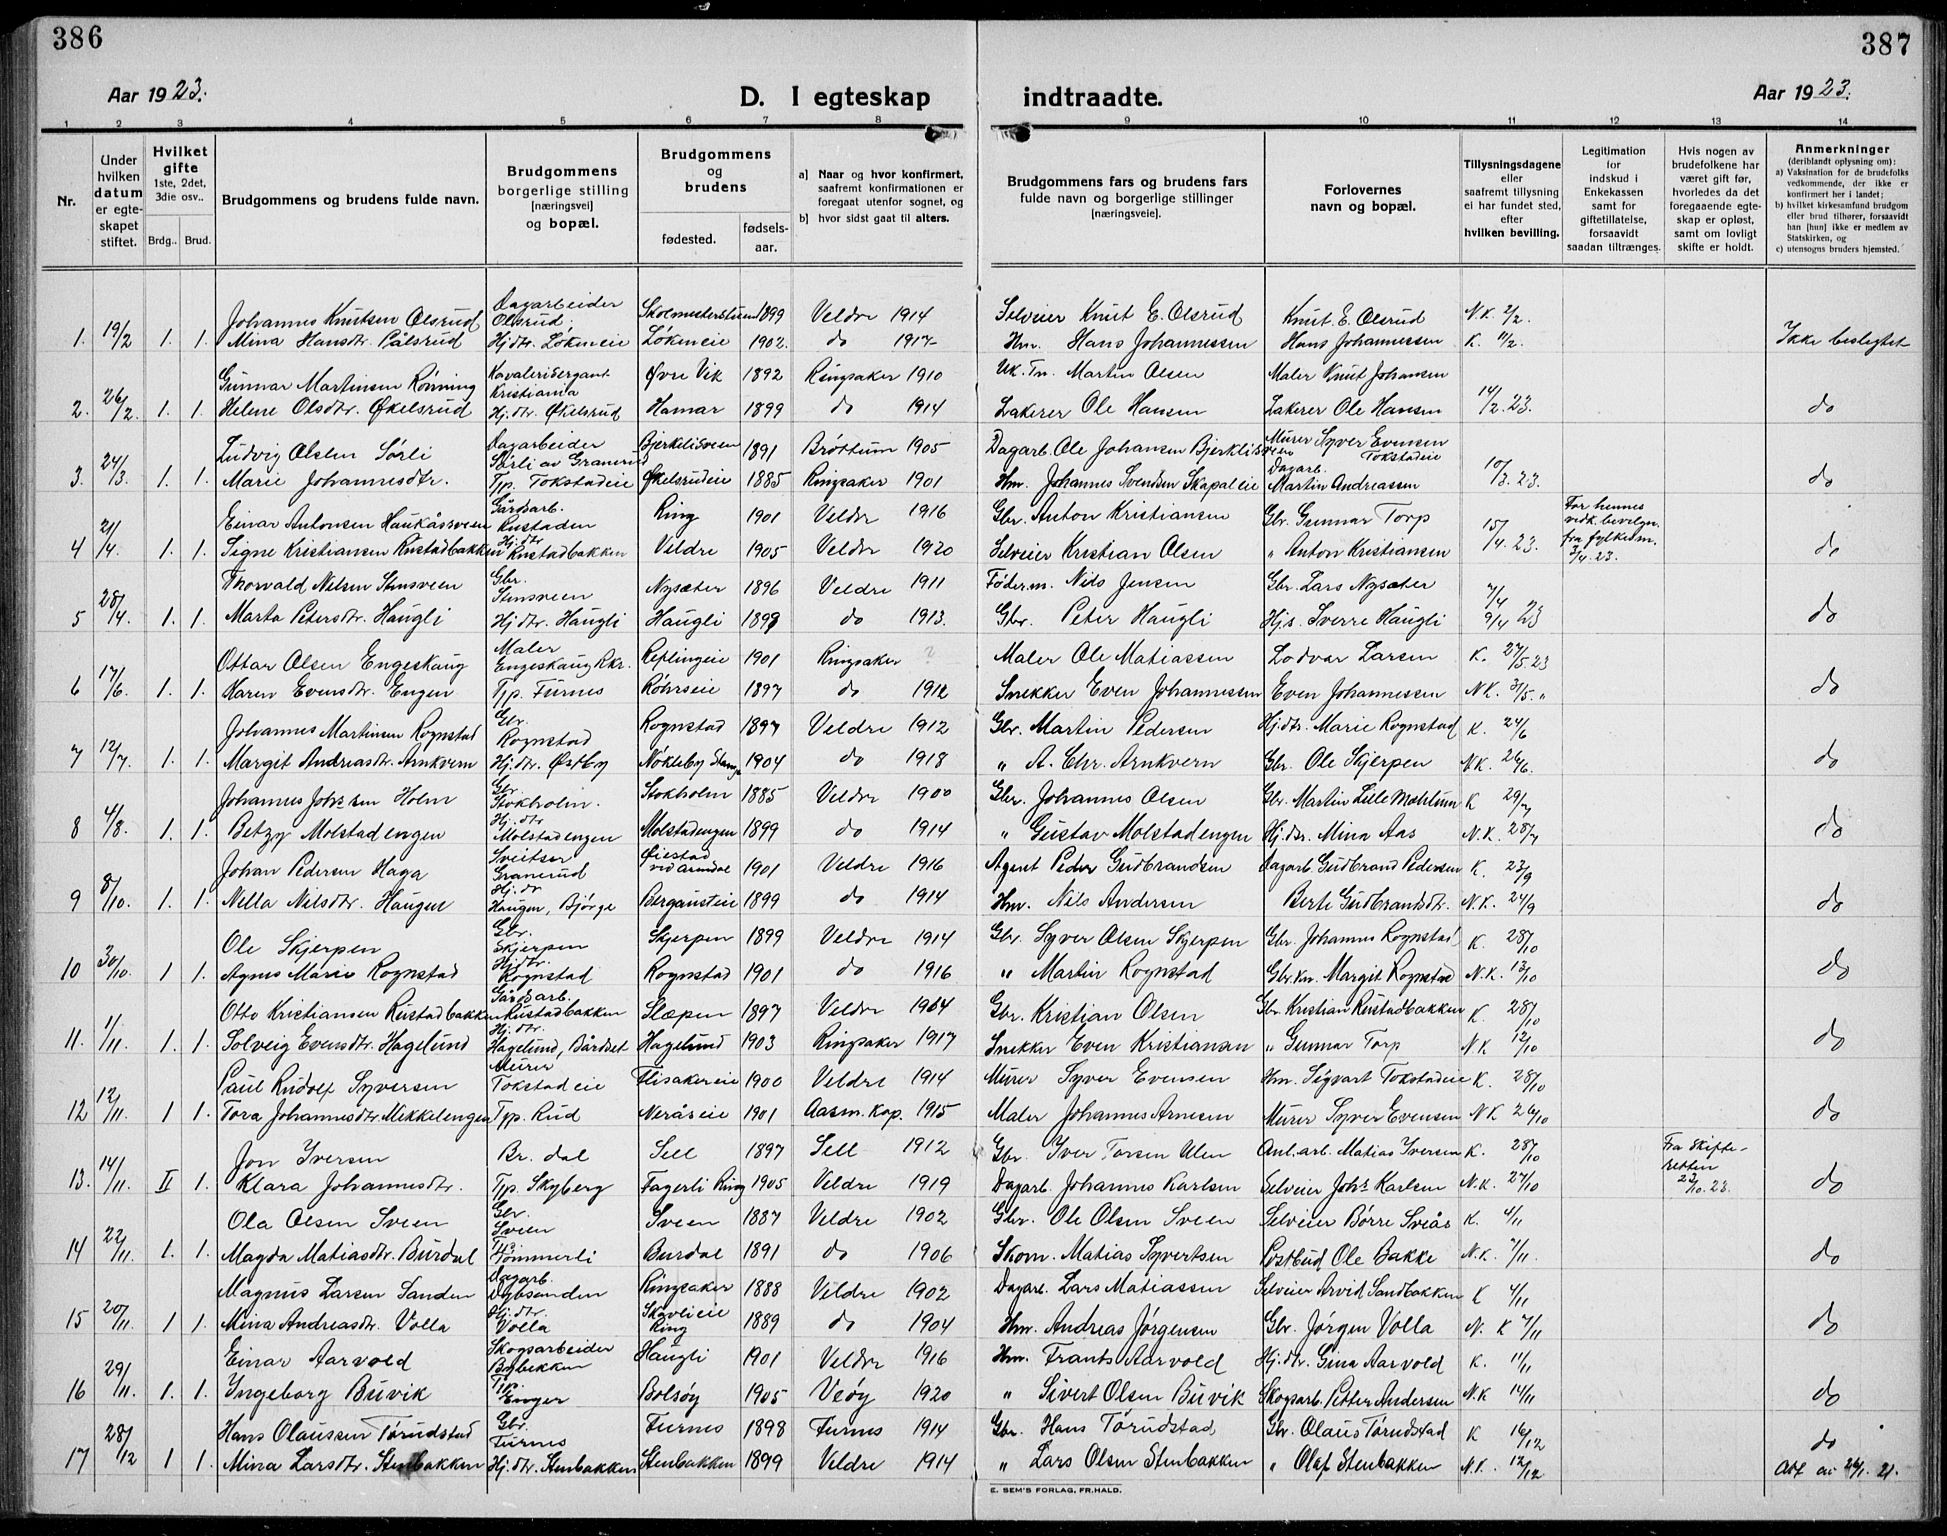 386
387
Aar 1923.
D. I egteskap indtraadte.
Aar 1923.
1 2 3 4 5 6 7 8 9 10 11 12 13 14
Nr.
Under hvilken datum er egteskapet stiftet.
Hvilket gifte 1ste, 2det, 3die osv..
Brdg.. Brud.
Brudgommens og brudens fulde navn.
Brudgommens borgerlige stilling [næringsvei] og bopæl.
Brudgommens og brudens
fødested.
fødselsaar.
a) Naar og hvor konfirmert, saafremt konfirmationen er foregaat utenfor sognet, og
b) hvor sidst gaat til alters.
Brudgommens fars og brudens fars fulde navn og borgerlige stillinger [næringsveie].
Forlovernes navn og bopæl.
Tillysningsdagene eller saafremt tillysning ei har fundet sted, efter hvilken bevilling.
Legitimation for indskud i Enkekassen samt for giftetillatelse, forsaavidt saadan tiltrænges.
Hvis nogen av brudefolkene har været gift før, hvorledes da det foregaaende egteskap er opløst, samt om lovligt skifte er holdt.
Anmerkninger (deriblandt oplysning om):
a) Vaksination for de brudefolks vedkommende, der ikke er konfirmert her i landet;
b) hvilket kirkesamfund brudgom eller brud tilhører, forsaavidt han [hun] ikke er medlem av Statskirken, og
c) utensogns bruders hjemsted.
Johannes Knutsen Olsrud Dagarbeider Olsrud. 1899 Veldre 1914 Selveier Knut E. Olsrud Knut E. Olsrud N.K. 2/2.
1. 19/2 1. 1. Mina Hansdtr. Pålsrud Hj.dtr. Løkeneie Løkeneie 1902. do 1917 Hm. Hans Johannessen Hans Johannessen K. 11/2. Ikke beslegtet
Gunnar Martinsen Rönning Kavalerisergant Kristiania Øvre Vik 1892 Ringsaker 1910 Martin Olsen Maler Knut Johansen
2. 26/2. 1. 1. Helene Olsdtr. Økelsrud Hj.dtr. Økelsrud Hamar 1899 do 1914 Lakerer Ole Hansen Lakerer Ole Hansen 14/2.23. do
Ludvig Olsen Sørli Dagarbeider Sørli av Granerud Bjerkelisveen 1891 Brøttum 1905 Dagarb. Ole Johansen Bjerklisveen Murer Syver Evensen Tokstadeie
3. 24/3. 1. 1. Marie Johannesdtr. Typ. Tokstadeie Økelsrudeie 1885 Ringsaker 1901 Hm. Johannes Svendsen Skapaleie Dagarb. Martin Andreassen 10/3.23. do
Einar Antonsen Haukåssveen Gårdsarb. Rustaden Ring 1901 Veldre 1916 Gbr. Anton Kristiansen Gbr. Gunnar Torp For hennes vedk. bevilgn. fra fylkesm. 3/4.23.
4 21/4. 1. 1. Signe Kristiansen Rustadbakken Hj.dtr. Rustadbakken Veldre 1905 Veldre 1920 Selveier Kristian Olsen " Anton Kristiansen 15/4.23. do
Thorvald Nilsen Stensveen Gbr. Stensveen Nysæter 1896 Veldre 1911 Føderm. Nils Jensen Gbr. Lars Nysæter 7/4
5 28/4. 1. 1. Marta Petersdtr. Haugli Hj.dtr. Haugli Haugli 1899 do 1913. Gbr. Peter Haugli Hj.s. Sverre Haugli 9/4 23 do
Ottar Olsen Engeskaug Maler Engeskaug Rkr. Replingeie 1901 Ringsaker ? Maler Ole Matiassen Lodvar Larsen K. 27/5.23
6 17/6. 1. 1. Karen Evensdtr. Engen Typ. Furnes Røhrseie 1897 do 1912 Snekker Even Johannessen Even Johannessen N.K. 31/5. " do
Johannes Martinsen Rognstad Gbr. Rognstad Rognstad 1897 Veldre 1912 Gbr. Martin Pedersen Hj.dtr. Marie Rognstad K. 24/6
7 12/7. 1. 1. Margit Andreasdtr. Arnkvern Hj.dtr. Østby Nøkleby Stange 1904 do 1918 " A. Chr. Arnkvern Gbr. Ole Skjerpen N.K. 26/6. do
Johannes Johs sen Holm Gbr. Stokholm. Stokholm 1885 Veldre 1900 Gbr. Johannes Olsen Gbr. Martin Lille Mæhlum K 29/7
8 4/8. 1. 1. Betzy Molstadengen Hj.dtr Molstadengen Molstadengen 1899 do 1914 " Gustav Molstadengen Hj.dtr. Mina Aas N.K. 28/7 do
Johan Pedersen Haga Sveitser Granerud Øiestad ved Arendal 1901 Veldre 1916 Agent Peder Gudbrandsen Dagarb. Gudbrand Pedersen K. 23/9
9 8/10. 1. 1. Nella Nilsdtr. Haugen Hj.dtr Haugen, Bjørge Bergausteie 1899 do 1914 Hm. Nils Andersen Berte Gudbrandsdtr. N.K. 24/9 do
Ole Skjerpen Gbr. Skjerpen Skjerpen 1899 Veldre 1914 Gbr. Syver Olsen Skjerpen Gbr. Johannes Rognstad K. 28/10
10 30/10. 1 1. Agnes Marie Rognstad Hj.dtr. Rognstad Rognstad 1901 do 1916 " Martin Rognstad Gbr.kn. Margit Rognstad N.K. 13/10 do
Otto Kristiansen Rustadbakken Gårdsarb. Rustadbakken Slæpen 1897 Veldre 1914 Gbr. Kristian Olsen Gbr. Kristian Rustadbakken K. 28/10
11. 1/11. 1. 1. Solveig Evensdtr. Hagelund Hj.dtr. Hagelund, Bårdset Hagelund 1903 Ringsaker 1917 Snekker Even Kristiansen " Gunnar Torp N.K 12/10 do
Paul Rudolf Syversen Murer Tokstadeie Flisakereie 1900 Veldre 1914 Murer Syver Evensen Hm. Sigvart Tokstadeie K. 28/10
12 12/11. 1 1. Tora Johannesdtr. Mikkelengen Typ. Rud Neråseie 1901 Aasm. kap. 1915 Maler Johannes Arnesen Murer Syver Evensen N.K 26/10 do
Jon Iversen Br. dal Sell 1897 Sell 1912 Gbr. Iver Torsen Ulen Anl.arb. Matias Iversen K. 28/10 Fra Skifteretten 23/10.23.
13. 14/11. II 1. Klara Johannesdtr. Typ. Skyberg Fagerli Ring 1905 Veldre 1919 Dagarb. Johannes Karlsen Selveier Johs Karlsen N.K. 24/10 do
Ola Olsen Sveen Gbr. Sveen Sveen 1887 Veldre 1902 Gbr. Ole Olsen Sveen Selveier Børre Sveås K. 4/11
14 22/11. 1. 1. Magda Matiasdtr. Burdal Tømmerli Burdal 1891 do 1906 Skom. Matias Syvertsen Postbud Ole Bakke N.K. 7/11. do
Magnus Larsen Sanden Dagarb. Dybsanden Ringsaker 1888 Veldre 1902 Dagarb. Lars Matiassen Selveier Arvid Sandbakken K 4/11
15 20/11. 1 1. Mina Andreasdtr. Volla Hj.dtr. Volla Skavlieie Ring 1889 do 1904 Hm. Andreas Jørgensen Gbr. Jørgen Volla N.K 7/11 do
Einar Aarvold Skogsarbeider Bybekken Haugli 1901 Veldre 1916 Hm. Frants Aarvold Hj.dtr. Gina Aarvold K. 11/11
16 29/11. 1. 1. Ingeborg Buvik Typ. Enger Bolsøy 1905 Veøy 1920 " Sivert Olsen Buvik Skogsarb. Petter Andersen N.K 14/11 do
Hans Olaussen Tørudstad Gbr. Furnes Furnes 1898 Furnes 1914 Gbr. Hans Tørudstad Gbr. Olaus Tørudstad K 16/12
17 28/12 1 1. Mina Larsdtr. Stenbakken Hj.dtr. Stenbakken Stenbakken 1899 Veldre 1914 " Lars Olsen Stenbakken " Olaf Stenbakken N.K. 12/12 do
26/1. 21.
E. SEM'S FORLAG, FR.HALD.